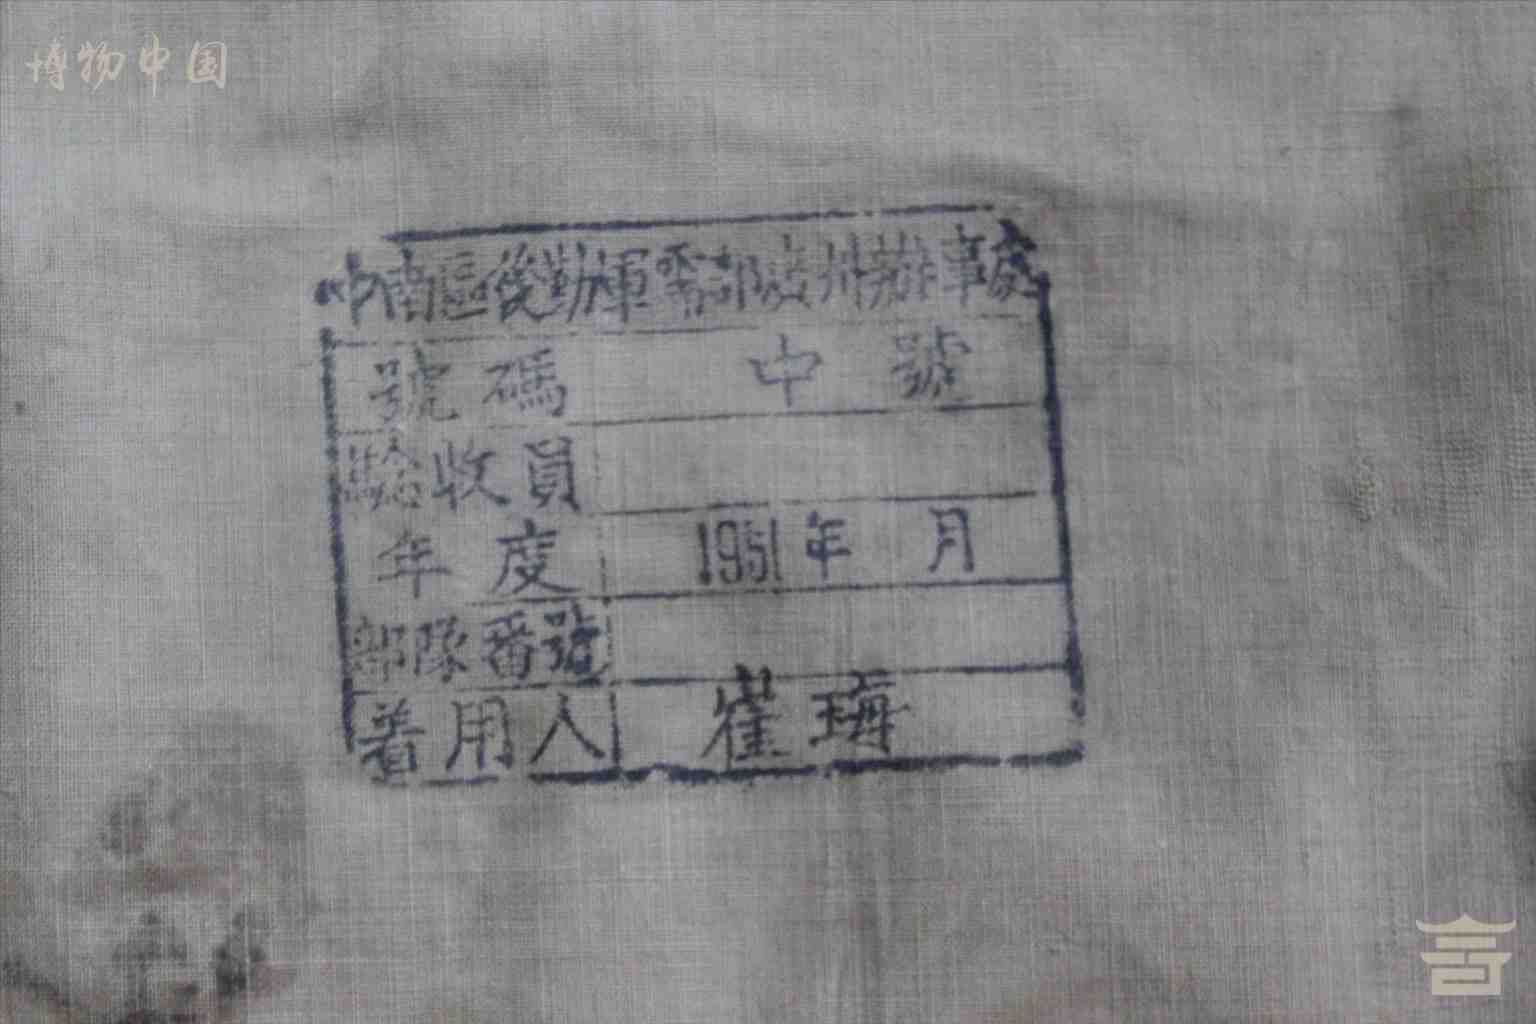 博物中国
中南區後勤軍需部廣州辦事處
號碼 中號
驗收員
年度 1951年 月
部隊番號
着用人 崔珻